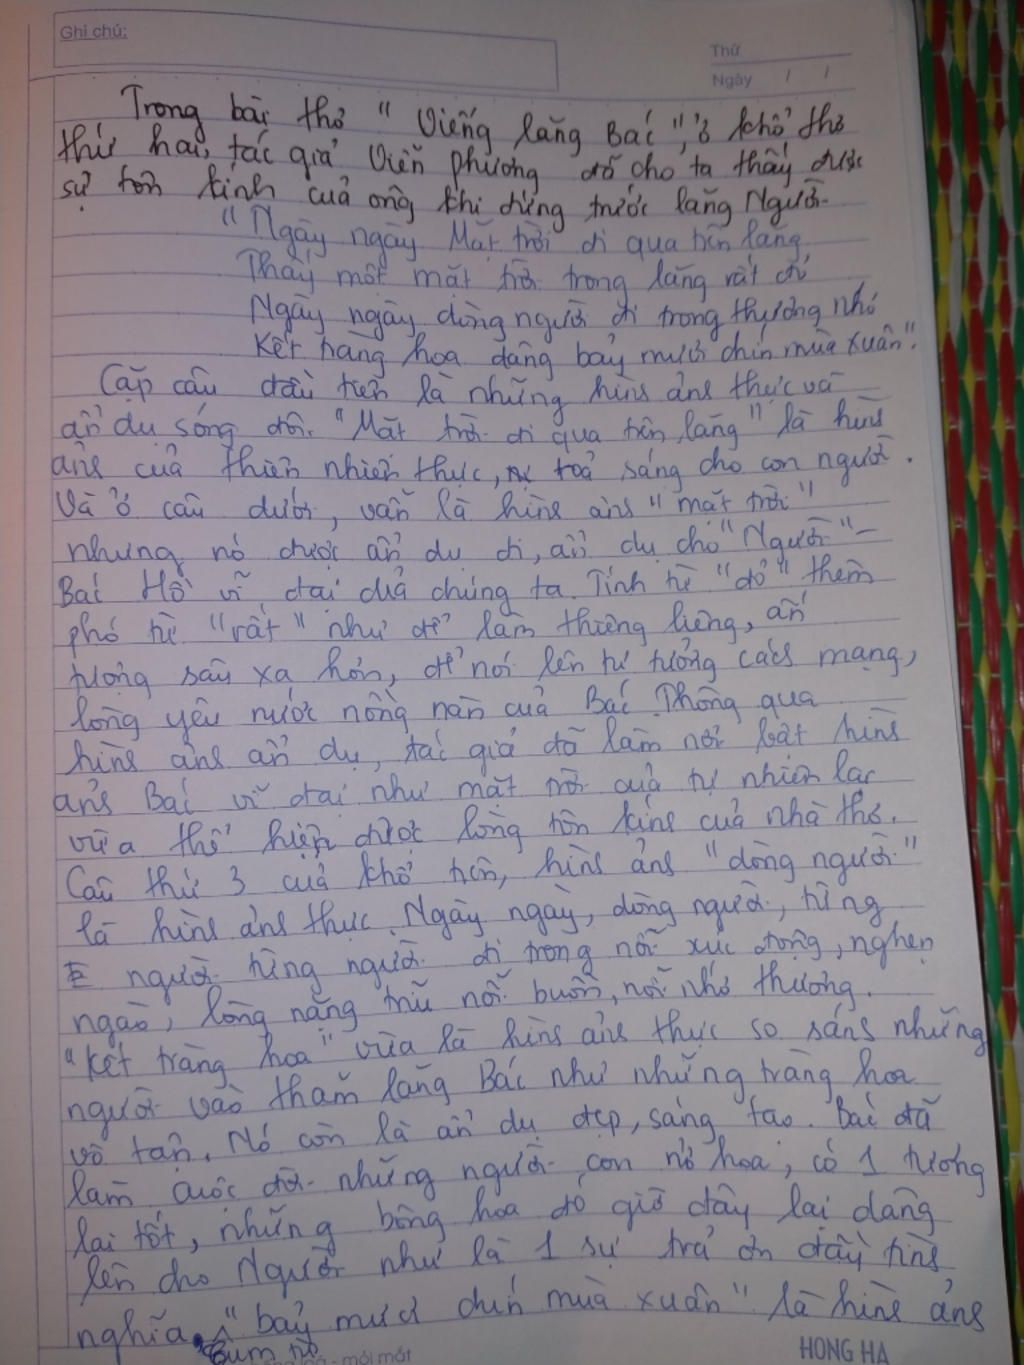 Ghi chú:
Thứ
Ngày / /
Trong bài thơ "Viếng lăng Bác", ở khổ thơ
thứ hai, tác giả Viễn phương đã cho ta thấy được
sự tôn kính của ông khi đứng trước lăng Người.
"Ngày ngày Mặt trời đi qua trên lăng
Thấy một mặt trời trong lăng rất đỏ
Ngày ngày dòng người đi trong thương nhớ
Kết tràng hoa dâng bảy mươi chín mùa xuân".
Cặp câu đầu tiên là những hình ảnh thực và
ẩn dụ sóng đôi. "Mặt trời đi qua trên lăng" là hình
ảnh của thiên nhiên thực, toả sáng cho con người.
Và ở câu dưới, vẫn là hình ảnh "mặt trời"
nhưng nó được ẩn dụ đi, ẩn dụ cho "Người" –
Bác Hồ vĩ đại của chúng ta. Tính từ "đỏ" thêm
phó từ "rất" như để làm thiêng liêng, ấn
tượng sâu xa hơn, để nói lên tư tưởng cách mạng,
lòng yêu nước nồng nàn của Bác. Thông qua
hình ảnh ẩn dụ, tác giả đã làm nổi bật hình
ảnh Bác vĩ đại như mặt trời của tự nhiên lại
vừa thể hiện được lòng tôn kính của nhà thơ.
Câu thứ 3 của khổ trên, hình ảnh "dòng người"
là hình ảnh thực. Ngày ngày, dòng người, từng
người từng người đi trong nỗi xúc động, nghẹn
ngào, lòng nặng trĩu nỗi buồn, nỗi nhớ thương.
"Kết tràng hoa" vừa là hình ảnh thực so sánh những
người vào thăm lăng Bác như những tràng hoa
vô tận. Nó còn là ẩn dụ đẹp, sáng tạo. Bác đã
làm cuộc đời những người con nở hoa, có 1 tương
lai tốt, những bông hoa đó giờ đây lại dâng
lên cho Người như là 1 sự trả ơn đầy tình
nghĩa. "bảy mươi chín mùa xuân" là hình ảnh
Cụm từ
mỏi mắt
HONG HA